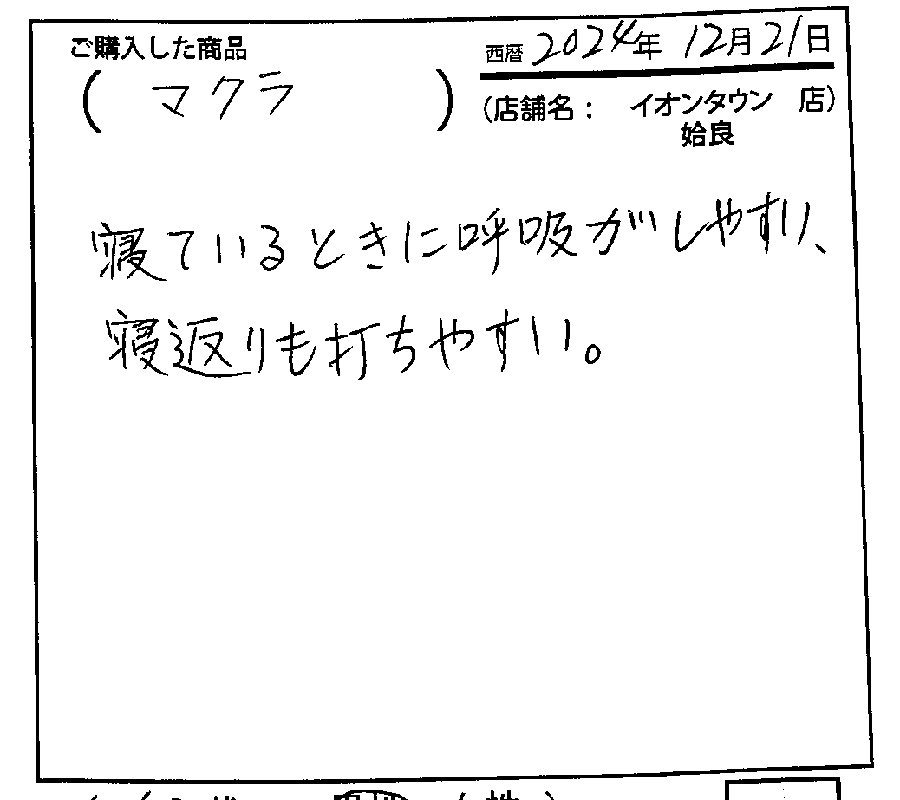 ご購入した商品
西暦 2024年 12月21日
( マクラ )
(店舗名： イオンタウン 店)
姶良
寝ているときに呼吸がしやすい、
寝返りも打ちやすい。